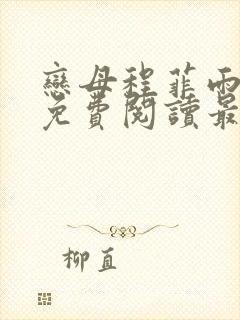 戀母程菲雨
免費閱讀最
柳直